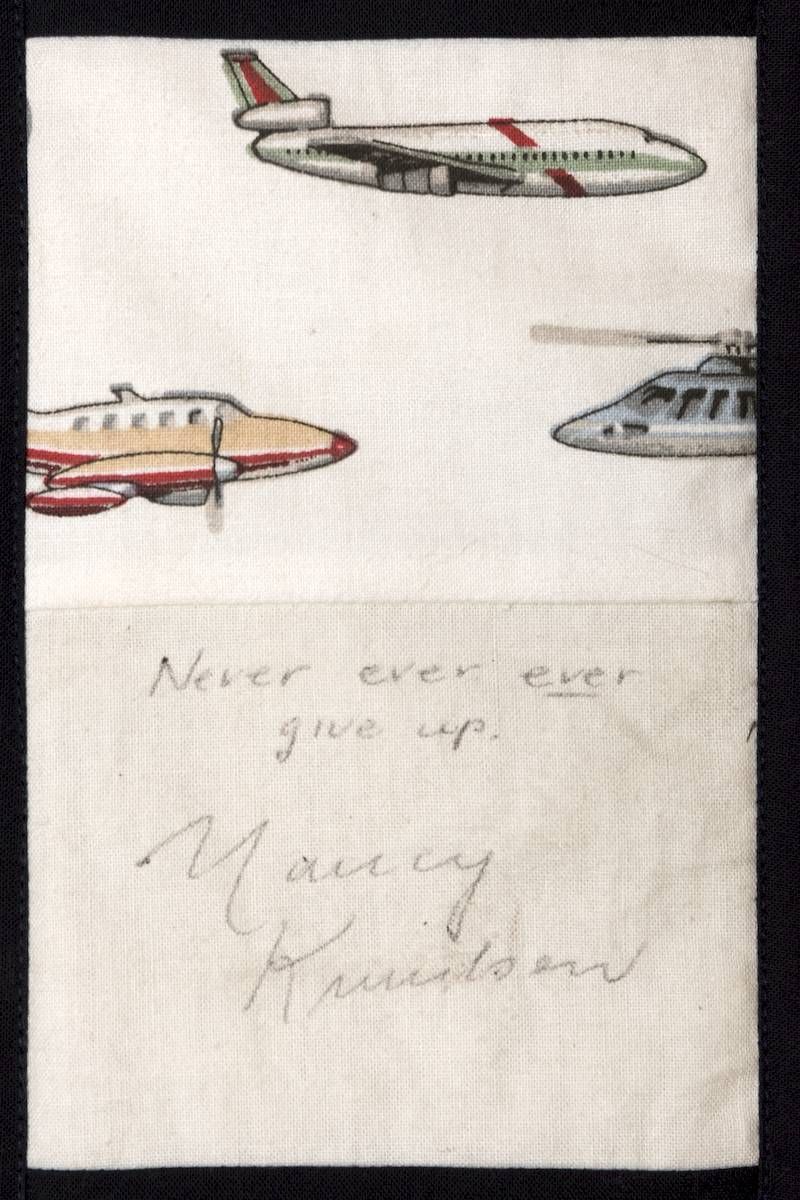 Never ever ever
give up.
Nancy
Knudsen